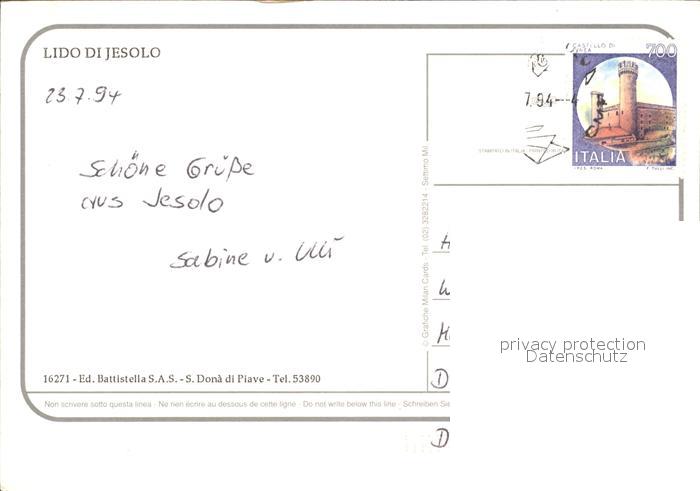 LIDO DI JESOLO
23.7.94
Schöne Grüße
aus Jesolo
Sabine u. Ulli
16271 - Ed. Battistella S.A.S. - S. Donà di Piave - Tel. 53890
Non scrivere sotto questa linea - Ne rien écrire au dessous de cette ligne - Do not write below this line - Schreiben Sie
© Grafiche Milan Cards - Tel. (02) 3282214 - Settimo Mil
CASTELLO DI
700
7.94 - 4
ITALIA
I.P.Z.S. ROMA
F. TULLI INC.
STAMPATO IN ITALIA
H
W
H
D
D
privacy protection
Datenschutz